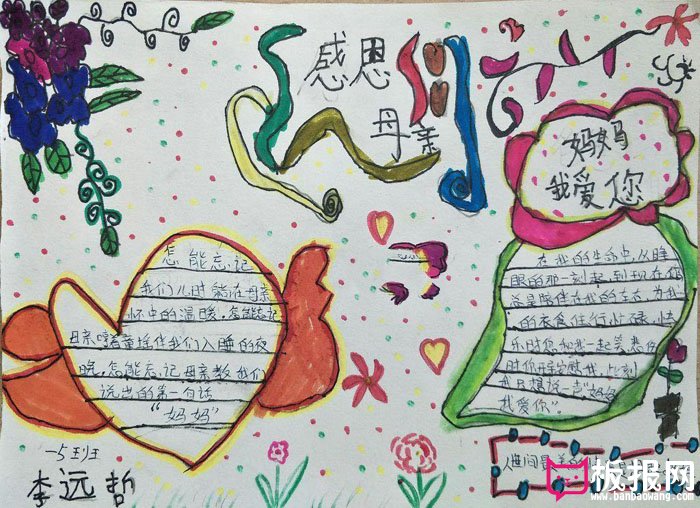 感恩
母亲
妈妈
我爱您
怎能忘记
我们儿时躺在母亲
怀中的温暖,怎能忘记
母亲哼着童谣伴我们入睡的夜
晚,怎能忘记母亲教我们
说出的第一句话
“妈妈”
在我的生命中,从睁
眼的那一刻起,到现在,您
总是陪伴在我的左右,为我
的衣食住行忙碌,快
乐时您和我一起笑,悲伤
时你开导我,此刻
我只想说一声“妈妈
我爱您”
一5班
李远哲
人世间最
板报网
www.banbaowang.com